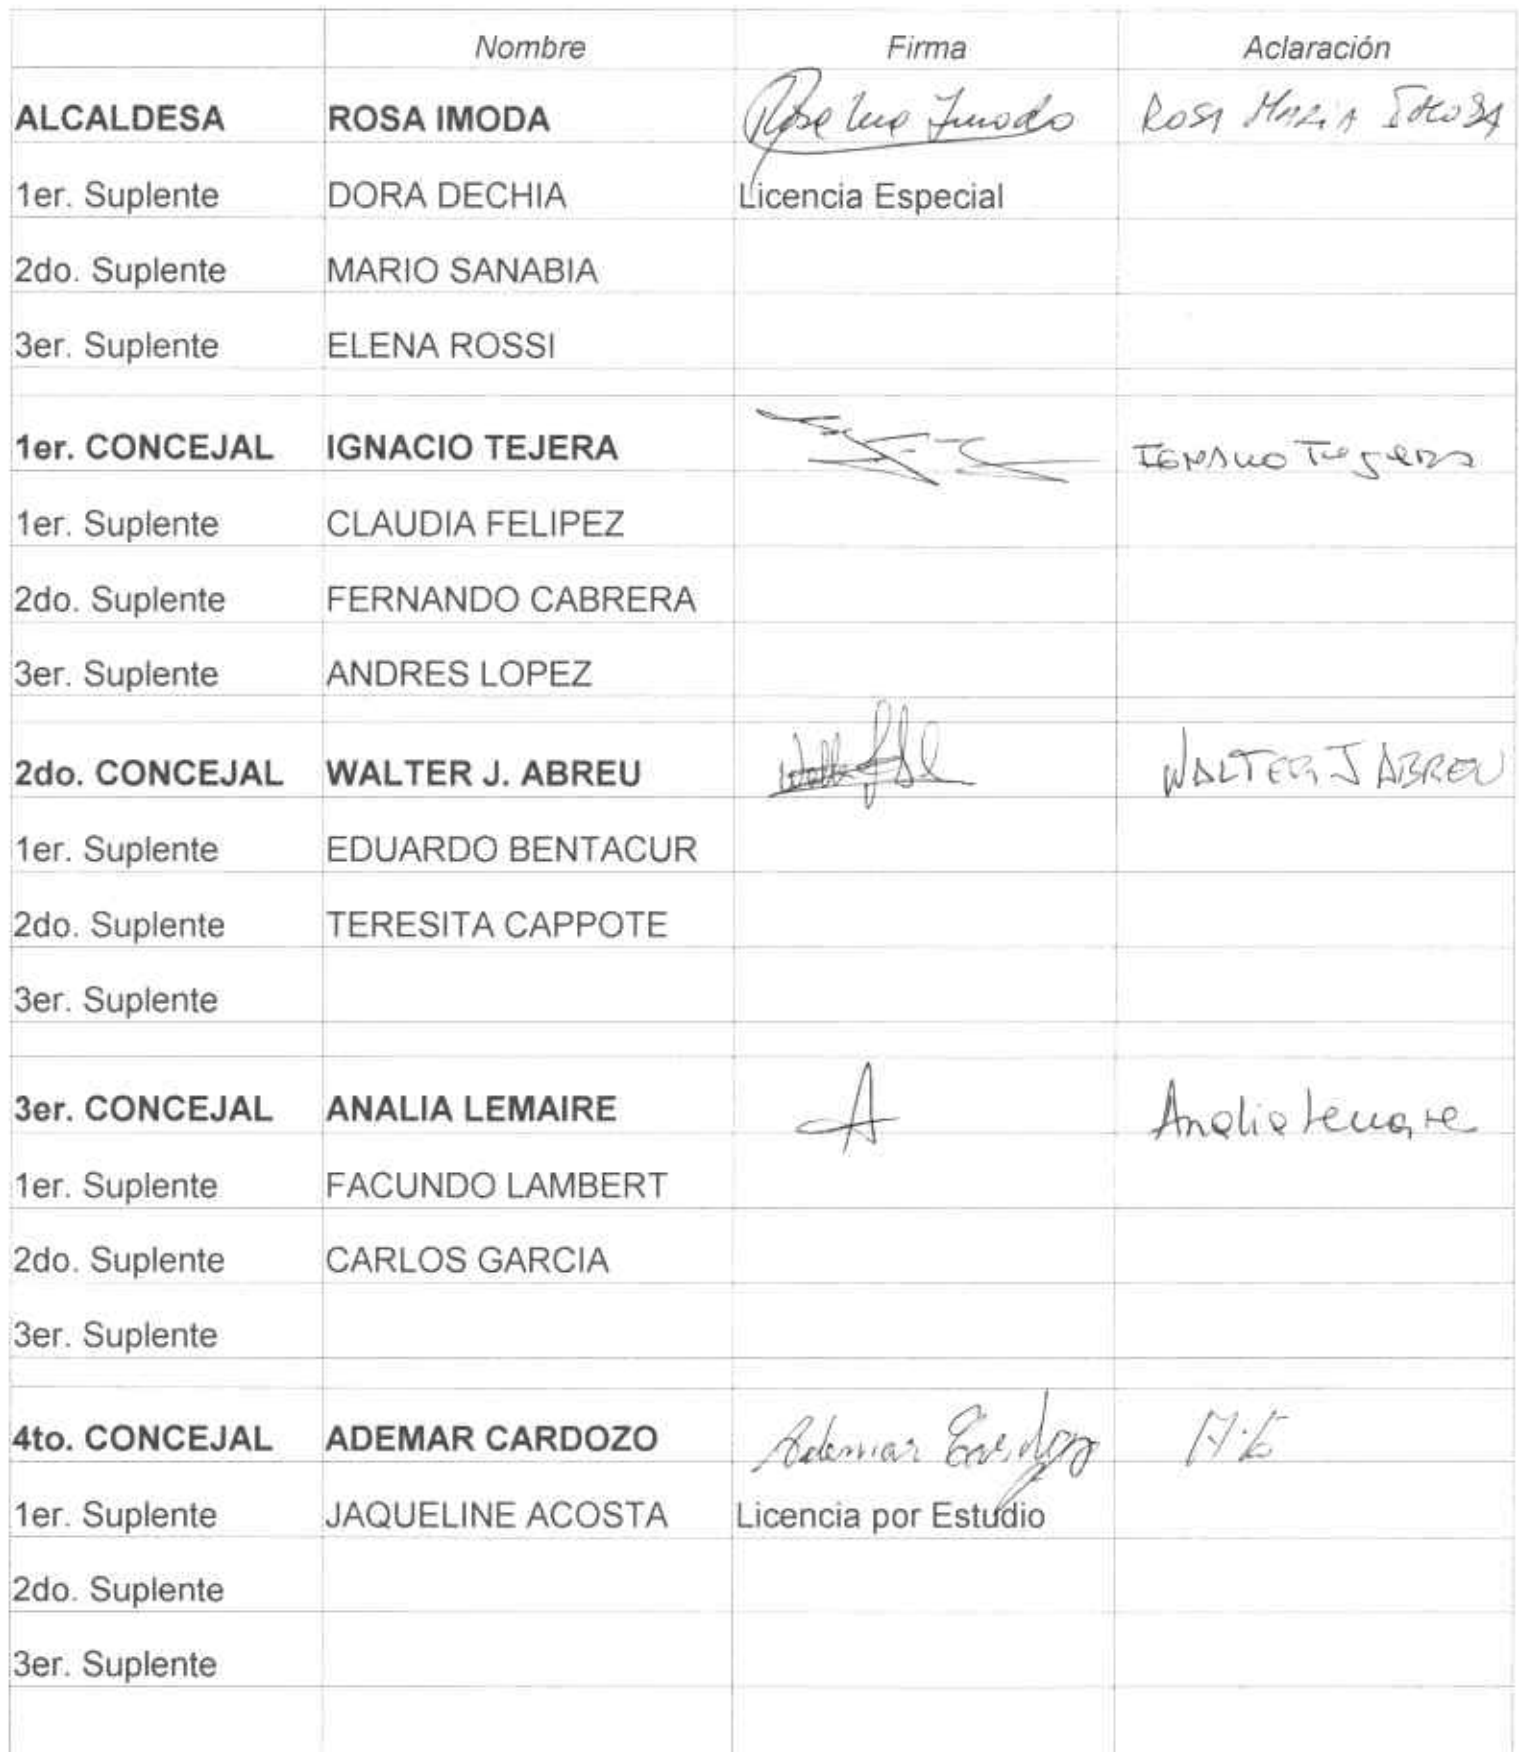 Nombre Firma Aclaración
ALCALDESA ROSA IMODA Rosa Imoda ROSA MARIA IMODA
1er. Suplente DORA DECHIA Licencia Especial
2do. Suplente MARIO SANABIA
3er. Suplente ELENA ROSSI
1er. CONCEJAL IGNACIO TEJERA Ignacio Tejera
1er. Suplente CLAUDIA FELIPEZ
2do. Suplente FERNANDO CABRERA
3er. Suplente ANDRES LOPEZ
2do. CONCEJAL WALTER J. ABREU WALTER J ABREU
1er. Suplente EDUARDO BENTACUR
2do. Suplente TERESITA CAPPOTE
3er. Suplente
3er. CONCEJAL ANALIA LEMAIRE A Analia Lemaire
1er. Suplente FACUNDO LAMBERT
2do. Suplente CARLOS GARCIA
3er. Suplente
4to. CONCEJAL ADEMAR CARDOZO Ademar Cardozo
1er. Suplente JAQUELINE ACOSTA Licencia por Estudio
2do. Suplente
3er. Suplente